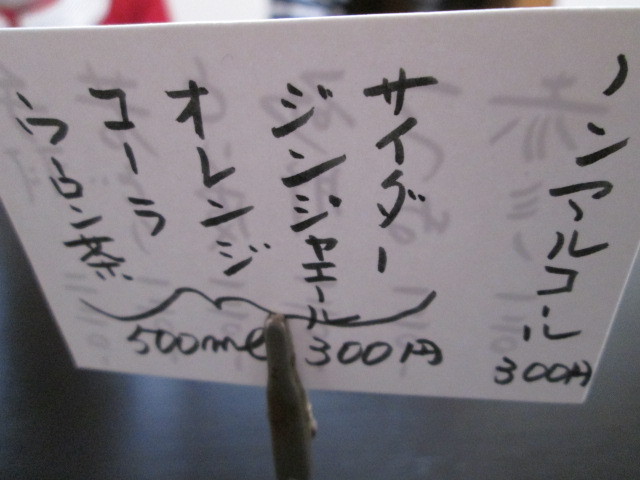 ノンアルコール 300円
サイダー
ジンジャエール
オレンジ
コーラ
ウーロン茶
500ml 300円